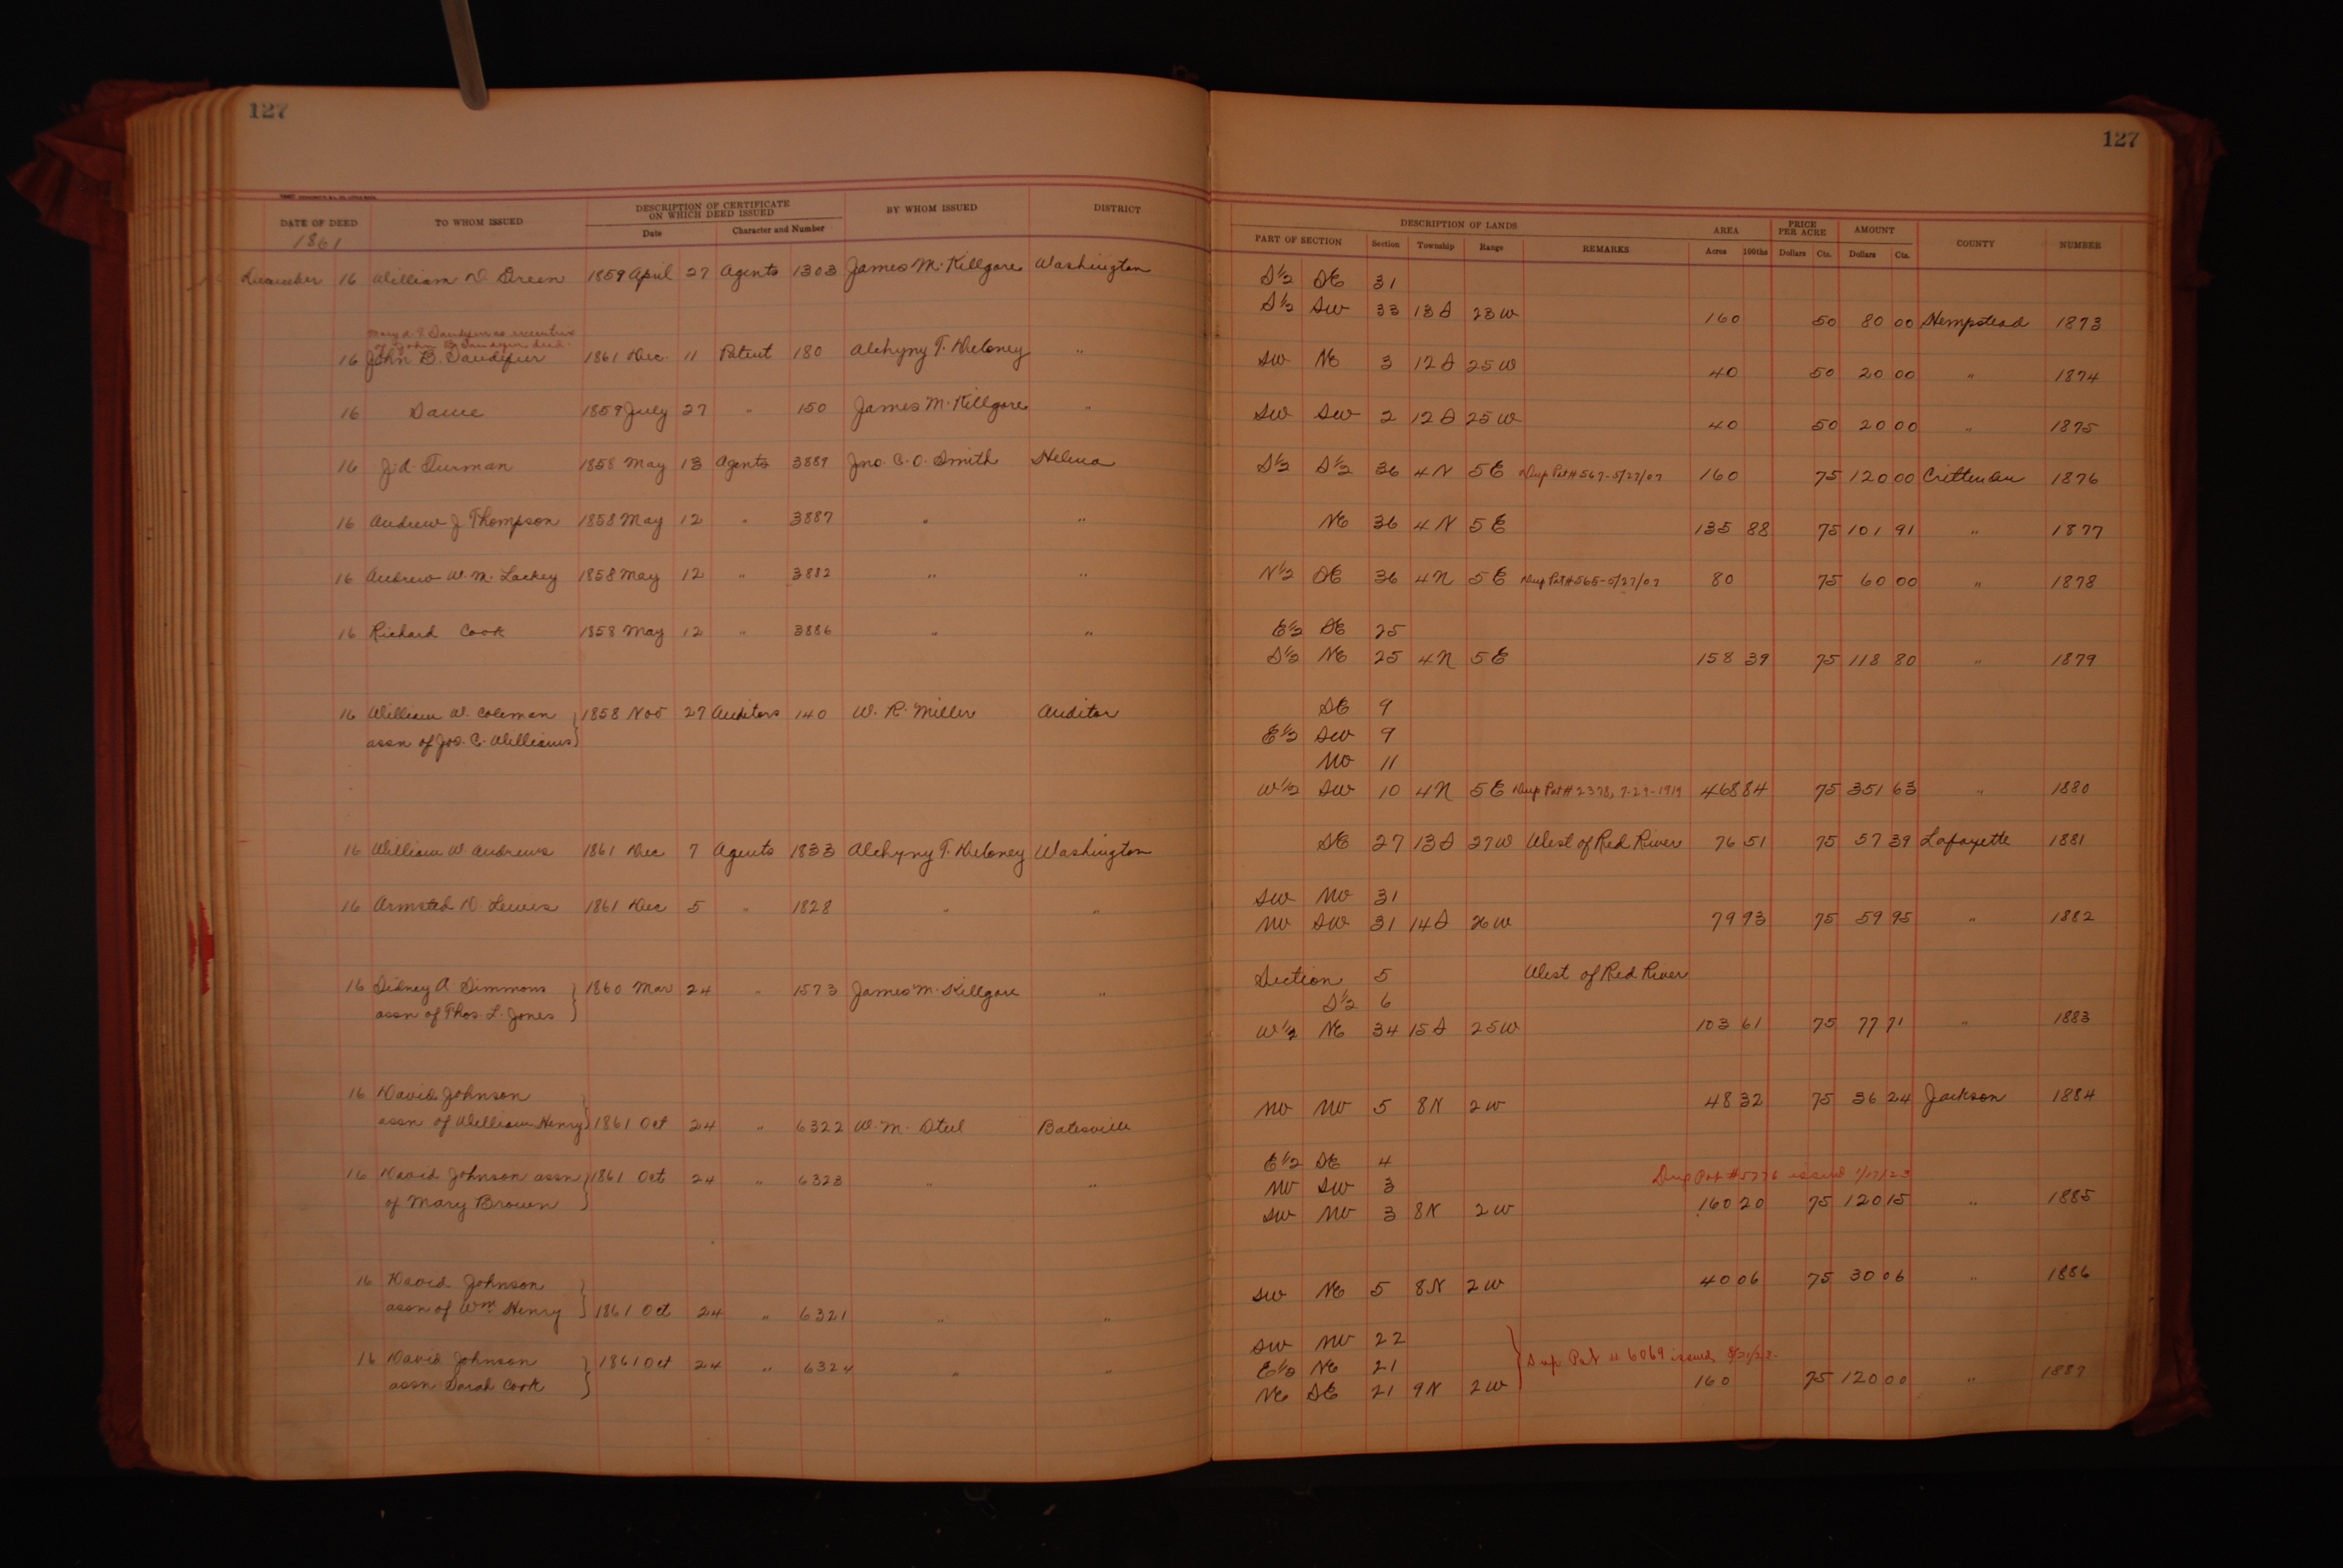 127
127
DATE OF DEED TO WHOM ISSUED DESCRIPTION OF CERTIFICATE ON WHICH DEED ISSUED BY WHOM ISSUED DISTRICT DESCRIPTION OF LANDS AREA PRICE PER ACRE AMOUNT COUNTY NUMBER
Date Character and Number PART OF SECTION Section Township Range REMARKS Acres 100ths Dollars Cts. Dollars Cts.
1861
December 16 William D Green 1859 April 27 Agents 1303 James M. Killgore Washington S½ SE 31
S½ SW 33 13 S 23 W 160 50 80 00 Hempstead 1873
16 John B. Sandefur 1861 Dec. 11 Patent 180 Alchyny T. Deloney " SW NE 3 12 S 25 W 40 50 20 00 " 1874
16 Same 1859 July 27 " 150 James M. Killgore " SW SW 2 12 S 25 W 40 50 20 00 " 1875
16 J. A. Turman 1858 May 13 Agents 3889 Jno. C. O. Smith Helena S½ S½ 36 4 N 5 E Dup Pat # 567-5/27/07 160 75 120 00 Crittenden 1876
16 Andrew J Thompson 1858 May 12 " 3887 " " NE 36 4 N 5 E 135 88 75 101 91 " 1877
16 Andrew W. M. Lackey 1858 May 12 " 3882 " " N½ SE 36 4 N 5 E Dup Pat # 565-5/27/07 80 75 60 00 " 1878
16 Richard Cook 1858 May 12 " 3886 " " E½ SE 25
S½ NE 25 4 N 5 E 158 39 75 118 80 " 1879
16 William W. Coleman 1858 Nov 27 Auditors 140 W. R. Miller Auditor SE 9
assn of Jos. C. Williams E½ SW 9
NW 11
W½ SW 10 4 N 5 E Dup Pat # 2378, 7-29-1919 468 84 75 351 63 " 1880
16 William W Andrews 1861 Dec 7 Agents 1833 Alchyny T. Deloney Washington SE 27 13 S 27 W West of Red River 76 51 75 57 39 Lafayette 1881
16 Armsted D. Lewis 1861 Dec 5 " 1828 " " SW NW 31
NW SW 31 14 S 26 W 79 93 75 59 95 " 1882
16 Sidney A. Simmons 1860 Mar 24 " 1573 James M. Killgore " Section 5 West of Red River
assn of Thos. L. Jones S½ 6
W½ NE 34 15 S 25 W 103 61 75 77 71 " 1883
16 David Johnson
assn of William Henry 1861 Oct 24 " 6322 W. M. Steel Batesville NW NW 5 8 N 2 W 48 32 75 36 24 Jackson 1884
16 David Johnson assn 1861 Oct 24 " 6323 " " E½ SE 4
of Mary Brown NW SW 3 Dup Pat # 5776 issued
SW NW 3 8 N 2 W 160 20 75 120 15 " 1885
16 David Johnson
assn of Wm Henry 1861 Oct 24 " 6321 " " SW NE 5 8 N 2 W 40 06 75 30 06 " 1886
16 David Johnson 1861 Oct 24 " 6324 " " SW NW 22
assn Sarah Cook E½ NE 21 Dup Pat # 6069 issued
NE SE 21 9 N 2 W 160 75 120 00 " 1887